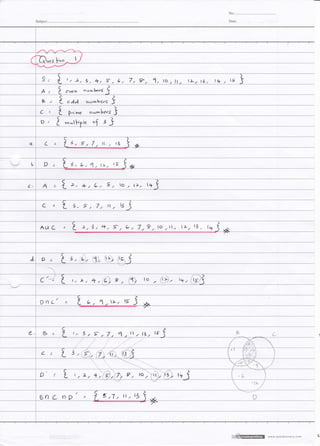 No.:
Subject:
Date:
Question 1
S = { 1, 2, 3, 4, 5, 6, 7, 8, 9, 10, 11, 12, 13, 14, 15 }
A = { even numbers }
B = { odd numbers }
C = { prime numbers }
D = { multiple of 3 }
a. C = { 3, 5, 7, 11, 13 }
b. D = { 3, 6, 9, 12, 15 }
c. A = { 2, 4, 6, 8, 10, 12, 14 }
C = { 3, 5, 7, 11, 13 }
A∪C = { 2, 3, 4, 5, 6, 7, 8, 10, 11, 12, 13, 14 }
d. D = { 3, 6, 9, 12, 15 }
C' = { 1, 2, 4, 6, 8, 9, 10, 12, 14, 15 }
D∩C' = { 6, 9, 12, 15 }
e. B = { 1, 3, 5, 7, 9, 11, 13, 15 }
C = { 3, 5, 7, 11, 13 }
D' = { 1, 2, 4, 5, 7, 8, 10, 11, 13, 14 }
B∩C∩D' = { 5, 7, 11, 13 }
B C
D